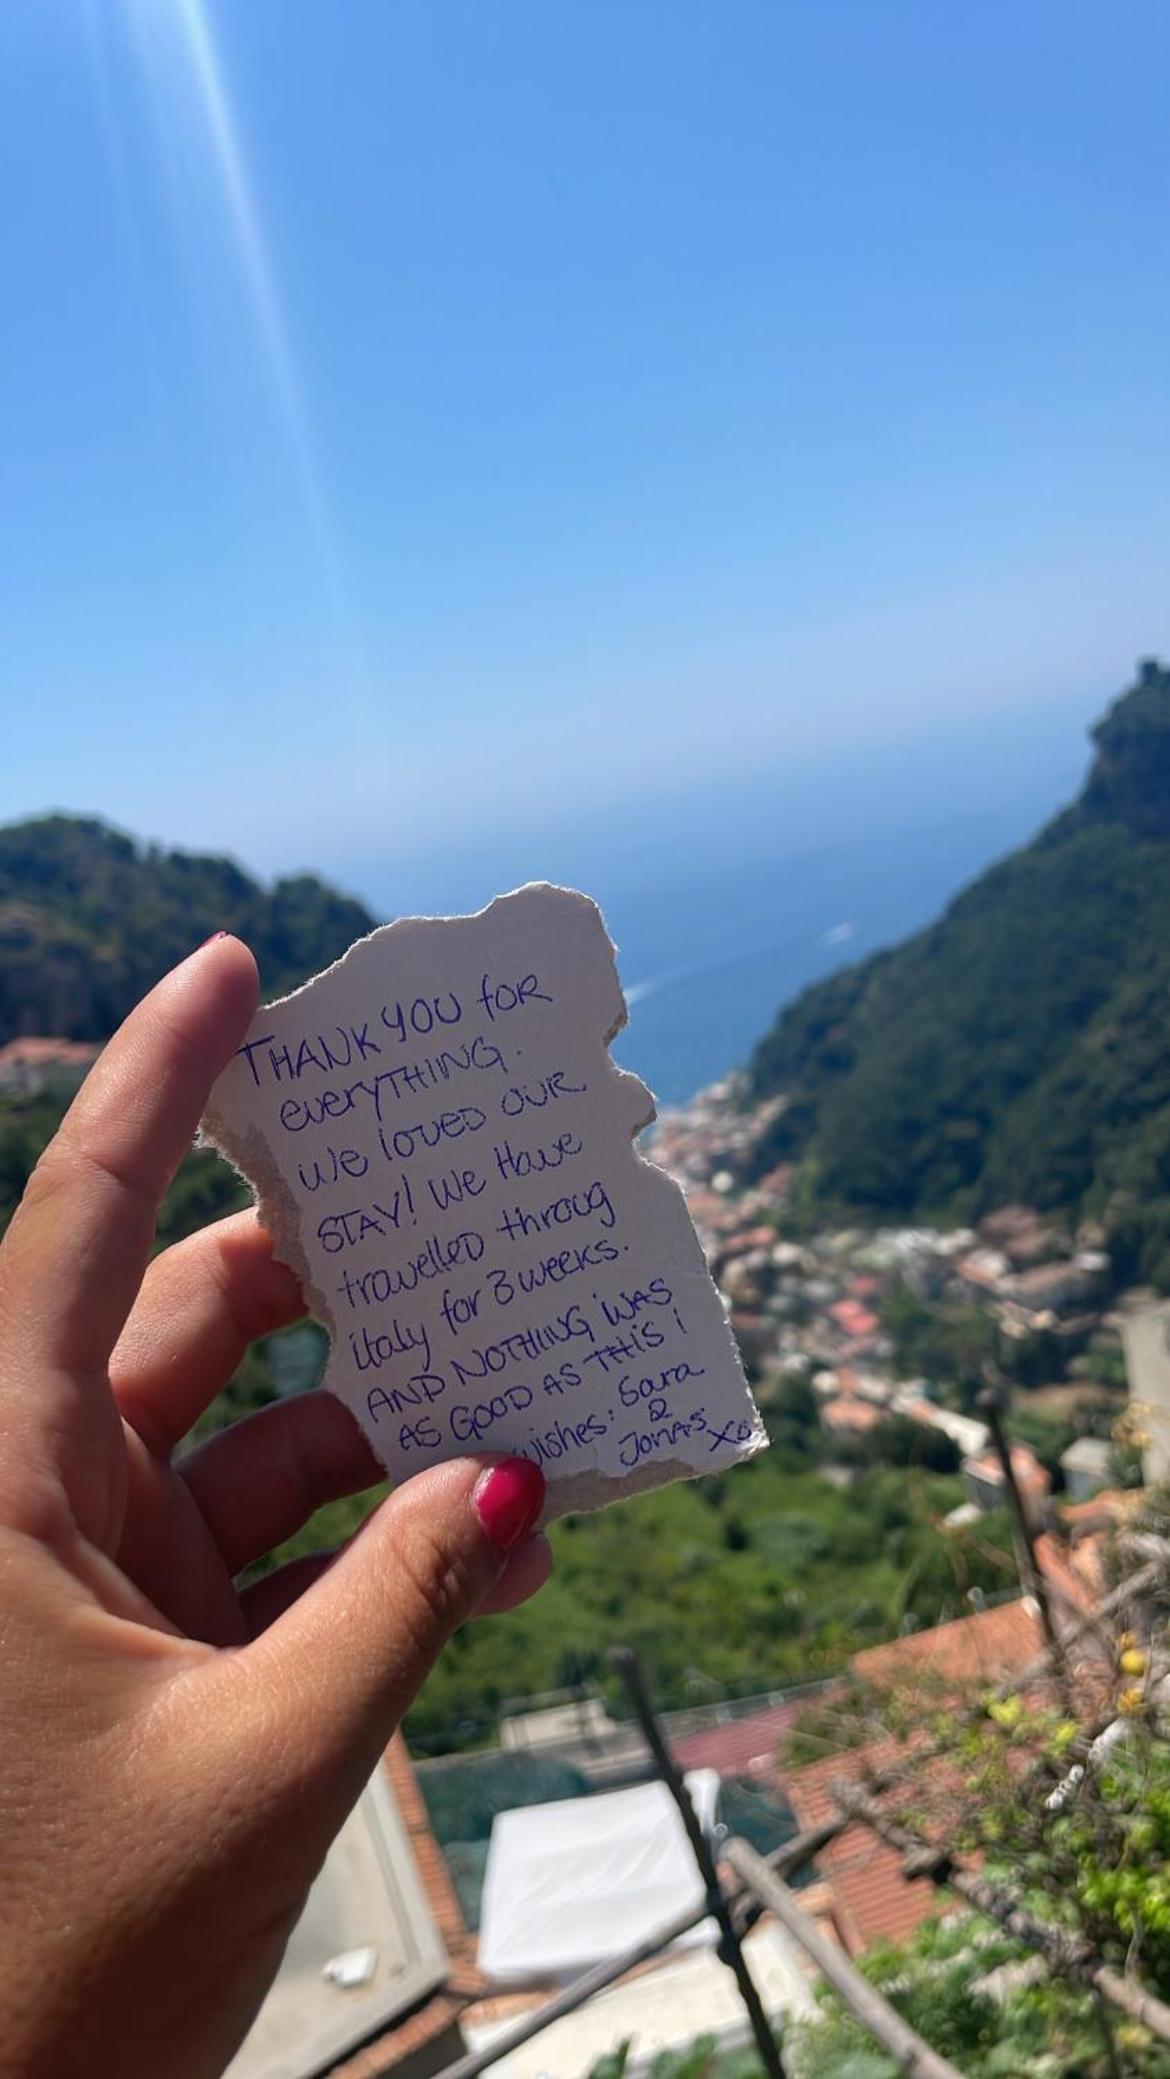 THANK YOU FOR
everyTHING.
we loved OUR
STAY! We Have
travelled throug
italy for 3 weeks.
AND NOTHING WAS
AS GOOD AS THIS!
wishes: Sara
&
JONAS. XO